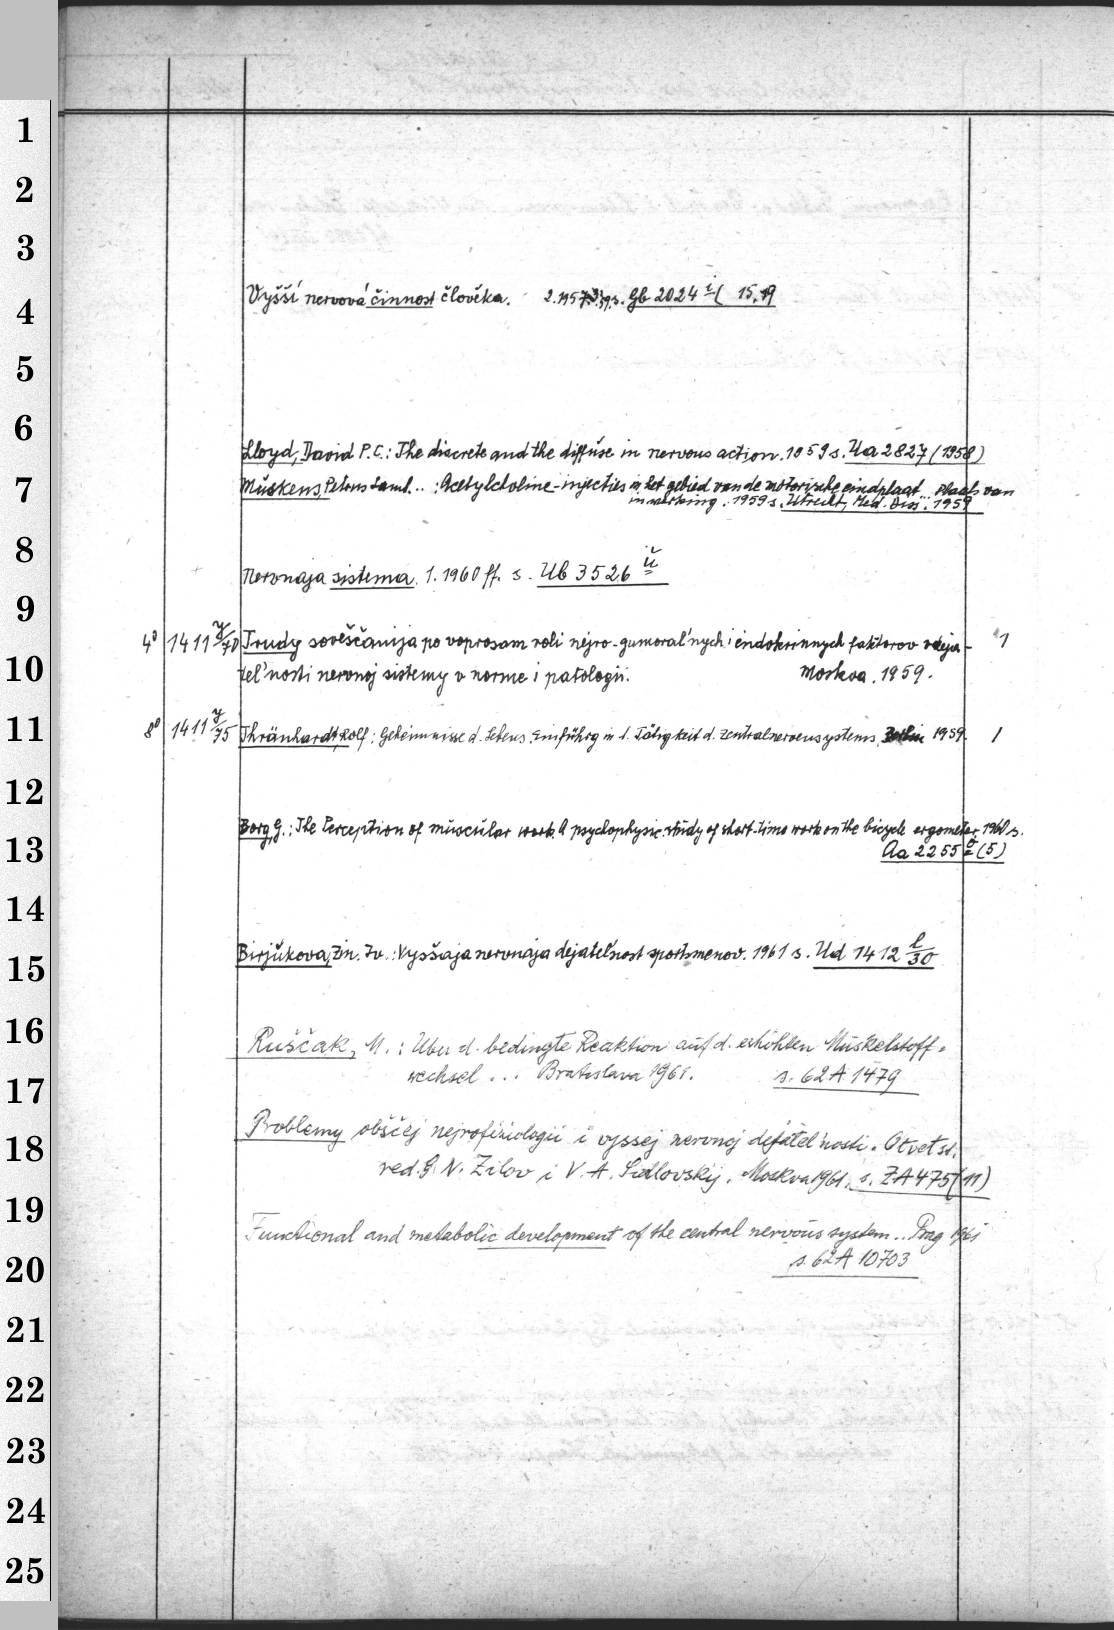 1
2
3
Vyšší nervová činnost člověka. 2.1957 s. Gb 2024 i/( 15.19
4
5
6
Lloyd, David P.C.: The discrete and the diffuse in nervous action. 1959 s. Ua 2827 (1958)
7
Muskens, Petrus Lamb... : Acetylcholine-injecties in het gebied van de motorische eindplaat... plaats van
inwerking. 1959 s. Utrecht, Med. Diss. 1959
8
Nervnaja sistema. 1. 1960 ff. s. Ub 3526 ü
9
4° 1411 y/70 Trudy soveščanija po voprosam roli nejro-gumoral'nych i endokrinnych faktorov v deja- 1
10
tel'nosti nervnoj sistemy v norme i patologii. Moskva. 1959.
11
8° 1411 y/75 Thränhardt, Rolf: Geheimnisse d. Lebens. Einführg in d. Tätigkeit d. Zentralnervensystems. Berlin 1959. 1
12
Borg, G.: The Perception of muscular work. A psychophysic. study of short-time work on the bicycle ergometer. 1960 s.
13
Aa 2255 (5)
14
Birjukova, Zin. Iv.: Vysšaja nervnaja dejatel'nost sportsmenov. 1961 s. Ud 1412 l/30
15
16
Ruščak, M.: Über d. bedingte Reaktion auf d. erhöhten Muskelstoff-
wechsel ... Bratislava 1961. s. 62 A 1479
17
Problemy obščej nejrofiziologii i vyssej nervnoj dejatel'nosti. Otvetst.
18
red. G. N. Zilov i V. A. Sedlovskij. Moskva 1961. s. ZA 475 (11)
19
Functional and metabolic development of the central nervous system... Prag 1961
20
s. 62 A 10703
21
22
23
24
25